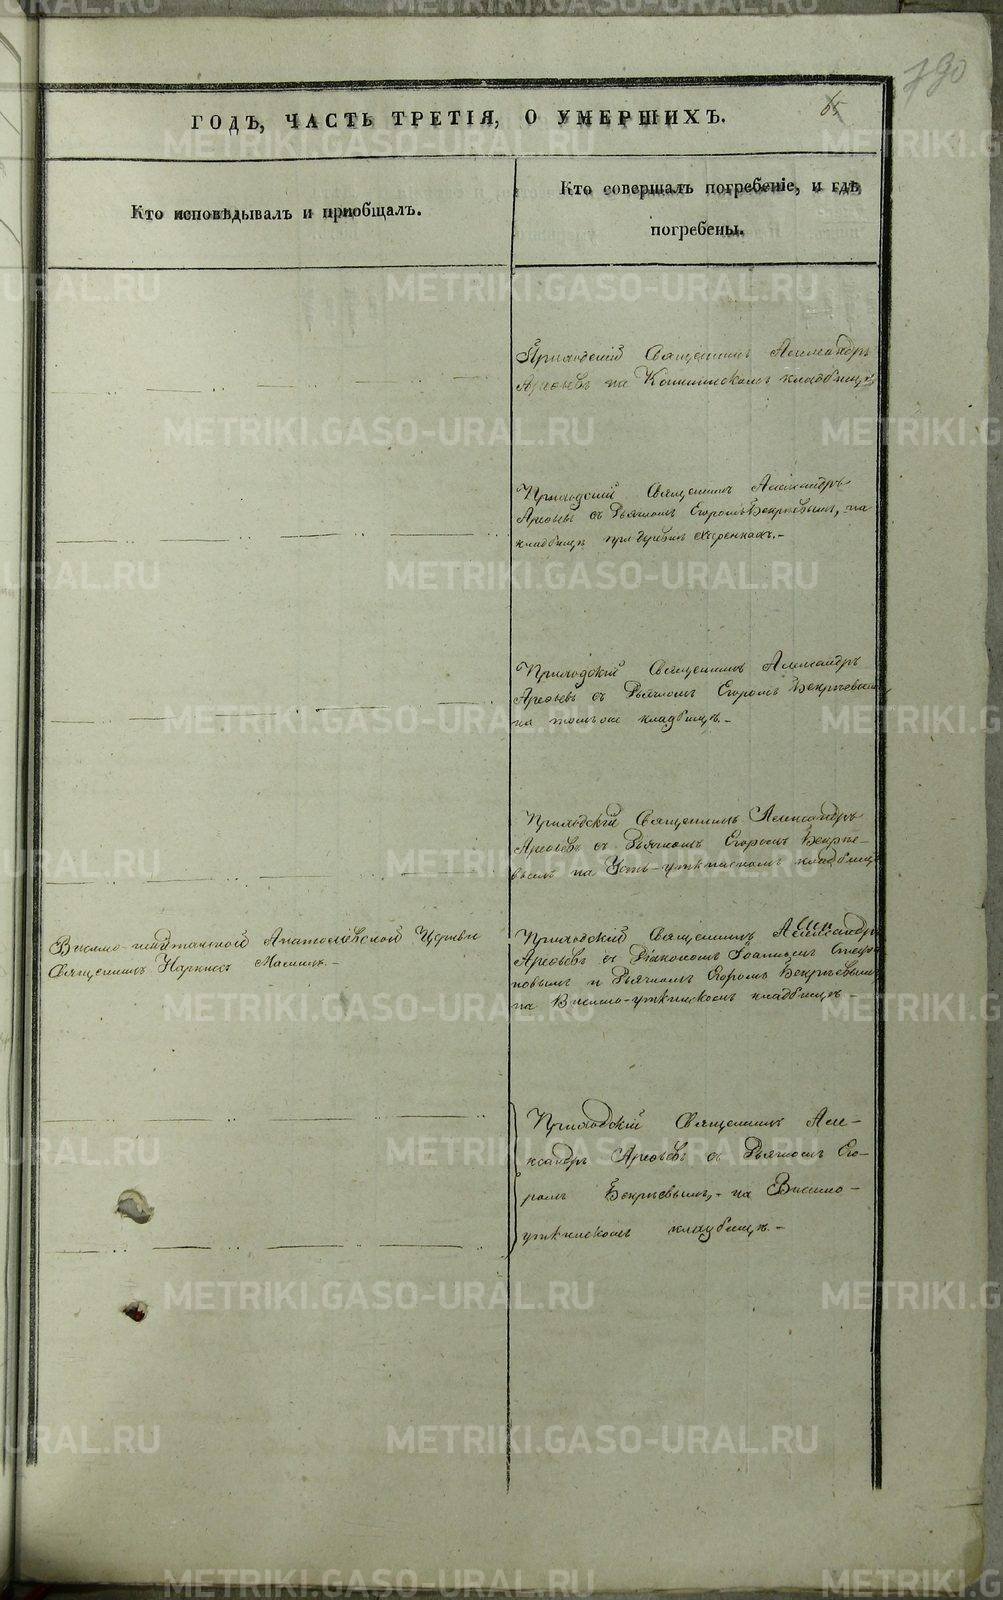 790
65
ГОДЪ, ЧАСТЬ ТРЕТІЯ, О УМЕРШИХЪ.
Кто исповѣдывалъ и пріобщалъ.
Кто совершалъ погребеніе, и гдѣ
погребены.
Приходскій Священникъ Александръ
Арефьевъ на кладбищѣ
Приходскій Священникъ Александръ
Арефьевъ съ Дьячкомъ Егоромъ Бекрѣевымъ, на
кладбищѣ при
Приходскій Священникъ Александръ
Арефьевъ съ Дьячкомъ Егоромъ Бекрѣевымъ
на томъ же кладбищѣ.-
Приходскій Священникъ Александръ
Арефьевъ съ Дьячкомъ Егоромъ Бекрѣе-
вымъ на Усть-уткинскомъ кладбищѣ
Висимо-шайтанской Анатоліевской Церкви
Священникъ Наркисъ Маминъ.-
Приходскій Священникъ Александръ
Арефьевъ съ Діакономъ Іоанномъ
и Дьячкомъ Егоромъ Бекрѣевымъ
на Висимо-уткинскомъ кладбищѣ.
Приходскій Священникъ Але-
ксандръ Арефьевъ съ Дьячкомъ Его-
ромъ Бекрѣевымъ,- на Висимо-
уткинскомъ кладбищѣ.-
METRIKI.GASO-URAL.RU